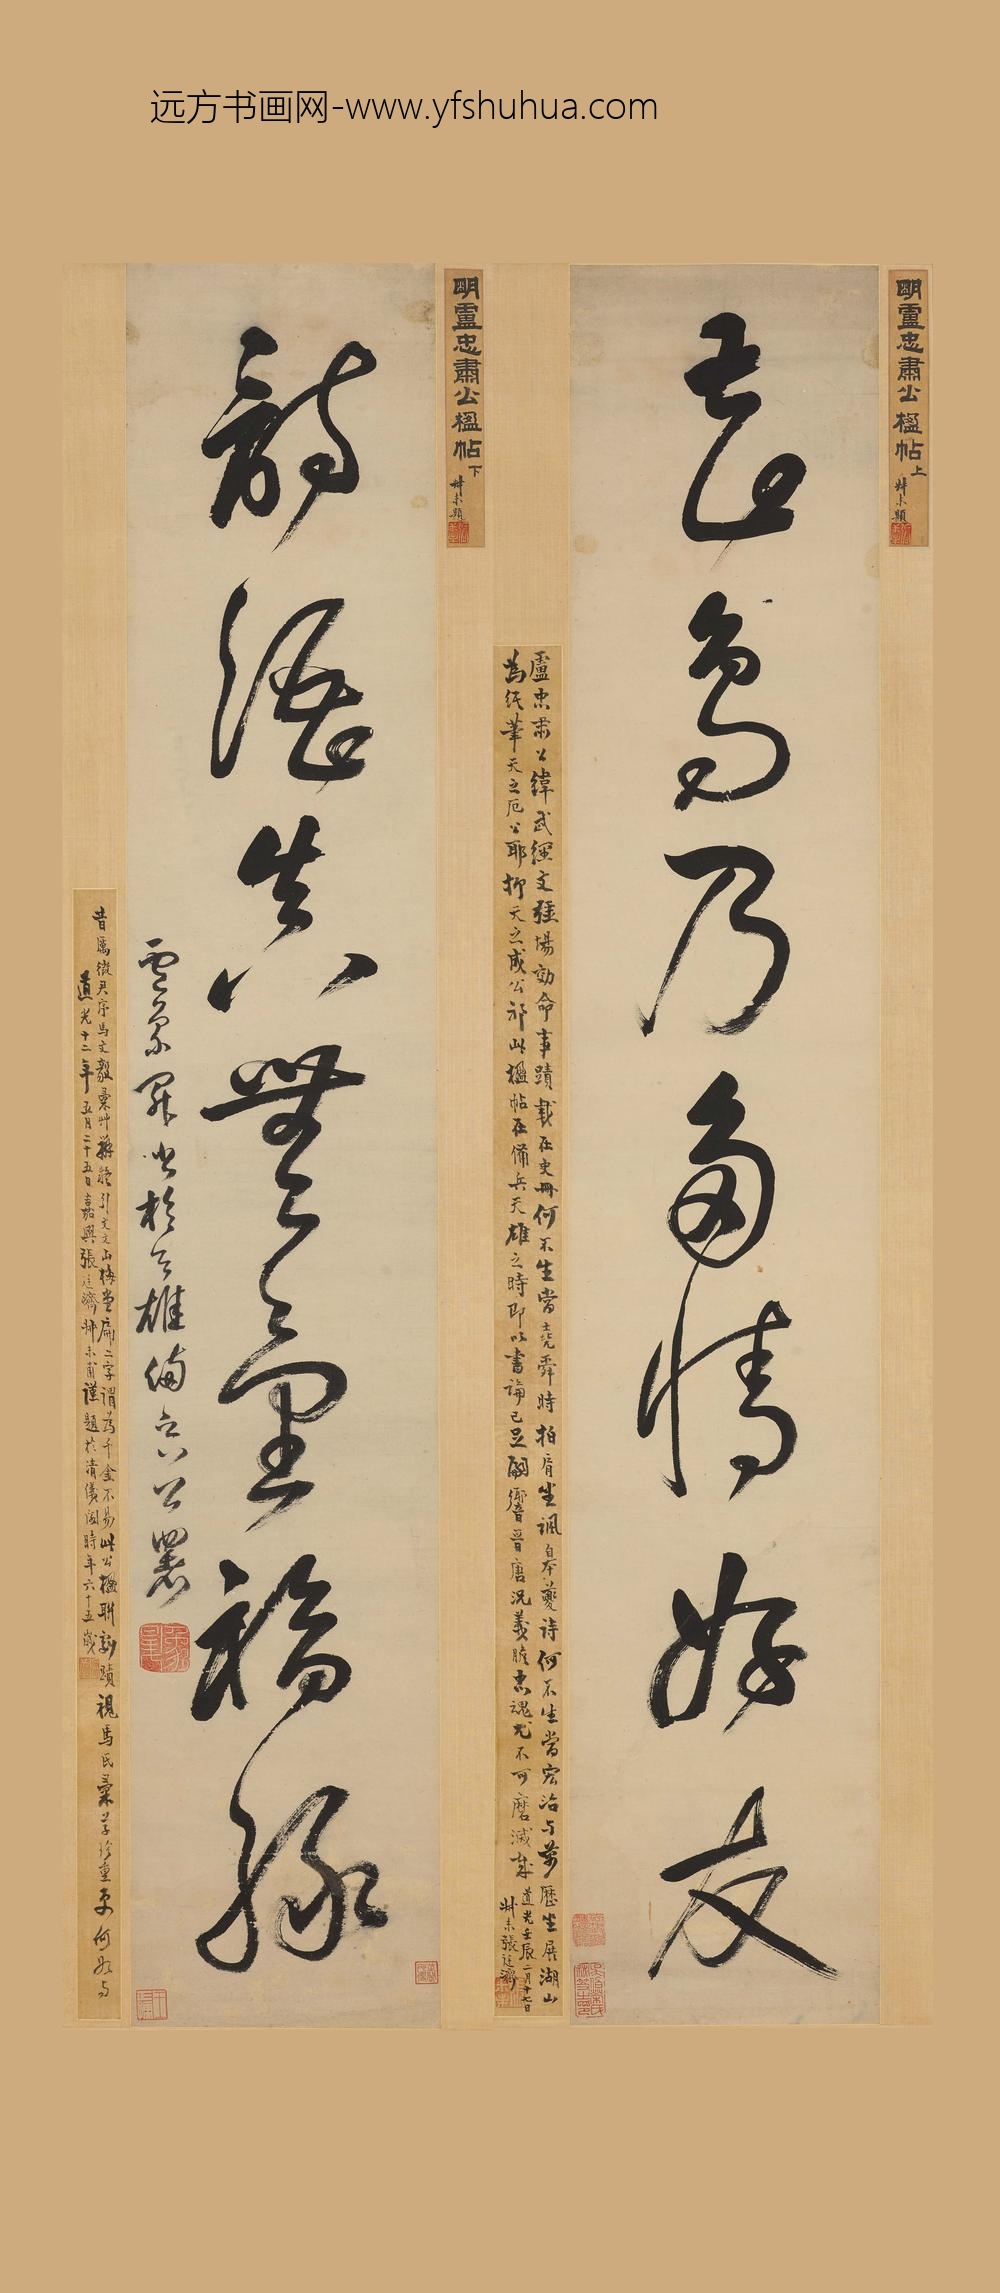 远方书画网-www.yfshuhua.com
明盧忠肅公楹帖上
尗未題
花鳥乃多情好友
盧忠肅公緯武經文疆場効命事蹟載在史冊何不生當堯舜時拍肩坐諷皋夔詩何不生當宏治与萬歷坐展湖山
為紙筆天之厄公耶抑天之成公邪此楹帖在備兵天雄之時即以書論已足嗣響晉唐況義膽忠魂尤不可磨滅哉
道光壬辰二月十七日
尗未張廷濟
明盧忠肅公楹帖下
尗未題
詩酒其無量福緣
雪泉罪
書於天雄備兵公署
昔厲徵君序馬文毅彙艸辨疑引文文山梅堂扁二字謂為千金不易此公楹聯剩蹟視馬氏彙草珍重更何如与
道光十二年五月二十五日嘉興張廷濟尗未甫謹題於清儀閣時年六十五歲